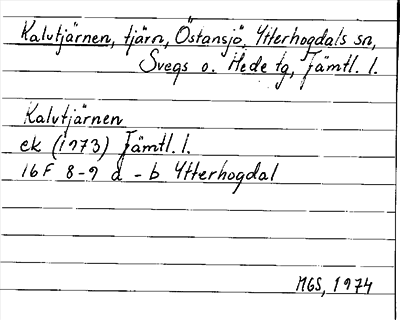 Kalvtjärnen, tjärn, Östansjö, Ytterhogdals sn,
Svegs o. Hede tg, Jämtl. l.
Kalvtjärnen
ek (1973) Jämtl. l.
16 F 8-9 d - b Ytterhogdal
MGS, 1974